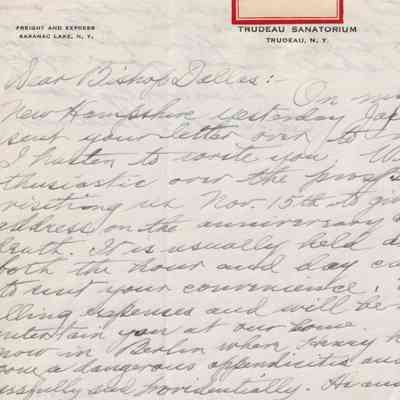 FREIGHT AND EXPRESS
SARANAC LAKE, N. Y.
TRUDEAU SANATORIUM
TRUDEAU, N. Y.
Dear Bishop Dallas:
On my
New Hampshire yesterday
sent your letter over to
I hasten to write you. W
thusiastic over the prosp
visiting us Nov. 15th to giv
address on the anniversary
death. It is usually held a
both the hour and day ca
to suit your convenience.
lling expenses and will be
ntertain you at our home.
now in Berlin where Henry h
gone a dangerous appendicitis and
ssfully and providentially. He and